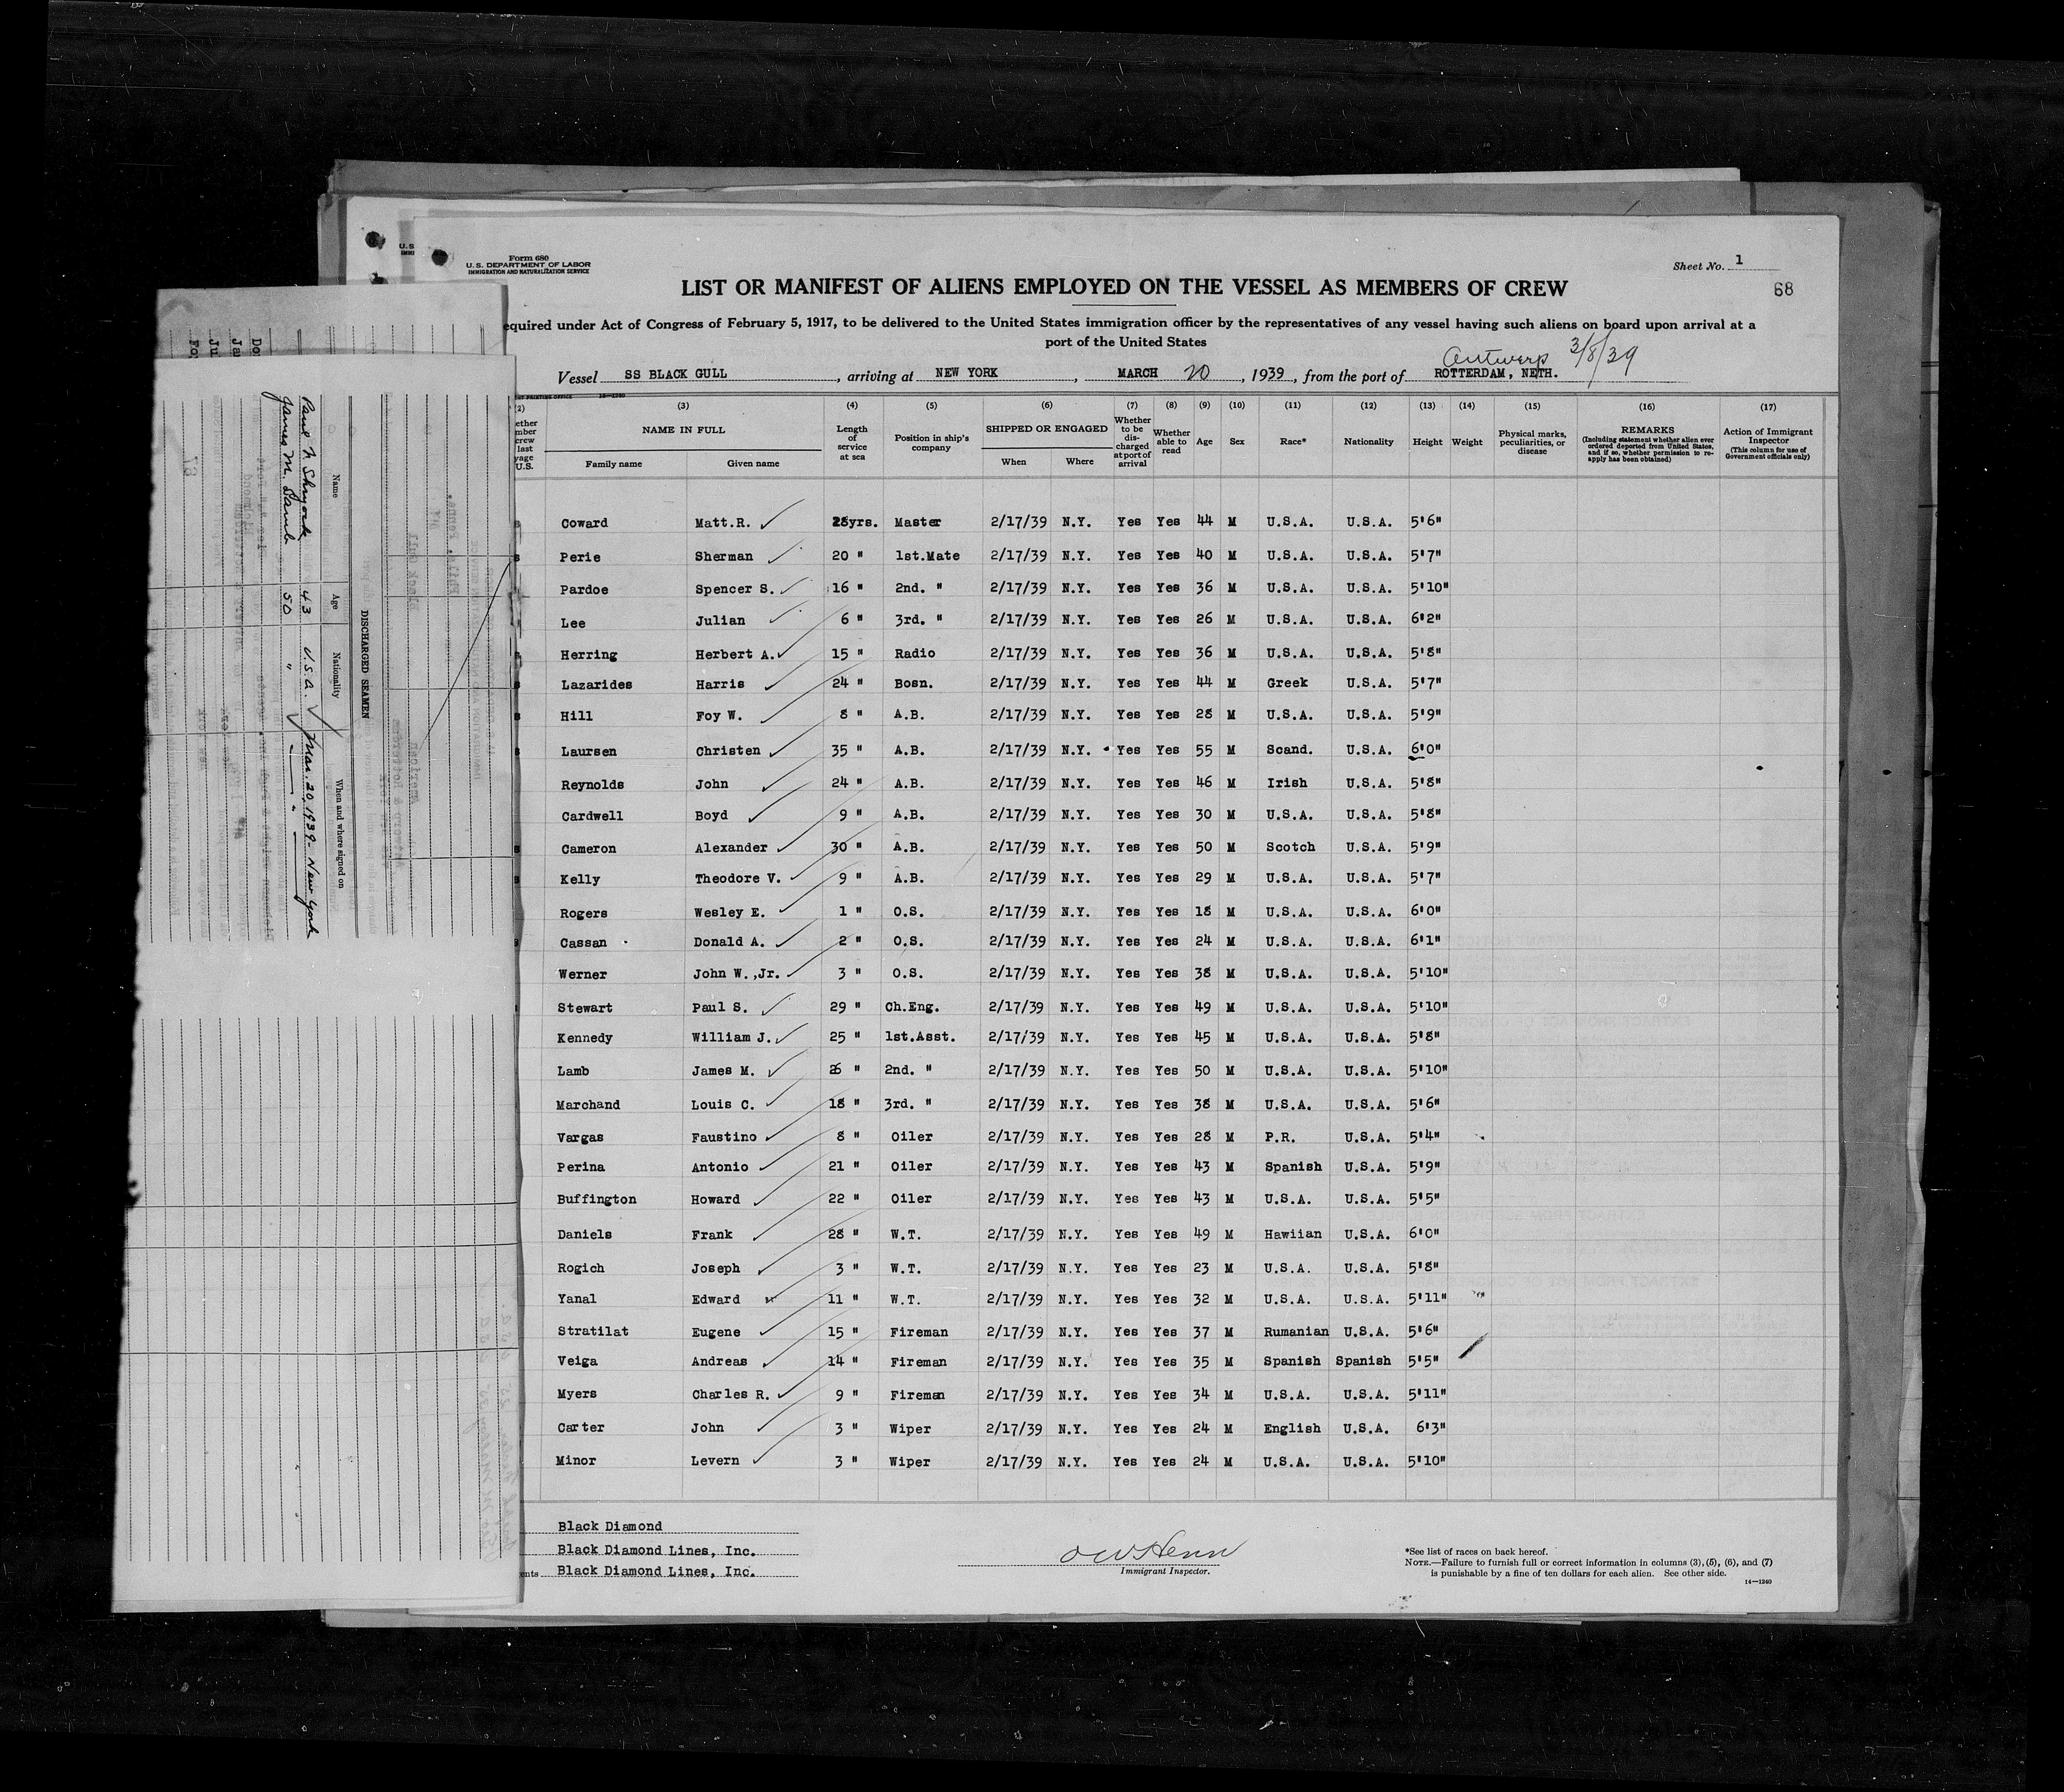 Form 680
U.S. DEPARTMENT OF LABOR
IMMIGRATION AND NATURALIZATION SERVICE
Sheet No. 1
68
LIST OR MANIFEST OF ALIENS EMPLOYED ON THE VESSEL AS MEMBERS OF CREW
equired under Act of Congress of February 5, 1917, to be delivered to the United States immigration officer by the representatives of any vessel having such aliens on board upon arrival at a
port of the United States
Antwerp 3/8/39
Vessel SS BLACK GULL, arriving at NEW YORK, MARCH 20, 1939, from the port of ROTTERDAM, NETH.
(2) (3) (4) (5) (6) (7) (8) (9) (10) (11) (12) (13) (14) (15) (16) (17)
NAME IN FULL
Family name Given name
Length of service at sea
Position in ship's company
SHIPPED OR ENGAGED
When Where
Whether to be discharged at port of arrival
Whether able to read
Age Sex Race* Nationality Height Weight
Physical marks, peculiarities, or disease
REMARKS
(Including statement whether alien ever ordered deported from United States, and if so, whether permission to reapply has been obtained)
Action of Immigrant Inspector
(This column for use of Government officials only)
Coward Matt.R. 28yrs. Master 2/17/39 N.Y. Yes Yes 44 M U.S.A. U.S.A. 5'6"
Perie Sherman 20 " 1st.Mate 2/17/39 N.Y. Yes Yes 40 M U.S.A. U.S.A. 5'7"
Pardoe Spencer S. 16 " 2nd. " 2/17/39 N.Y. Yes Yes 36 M U.S.A. U.S.A. 5'10"
Lee Julian 6 " 3rd. " 2/17/39 N.Y. Yes Yes 26 M U.S.A. U.S.A. 6'2"
Herring Herbert A. 15 " Radio 2/17/39 N.Y. Yes Yes 36 M U.S.A. U.S.A. 5'8"
Lazarides Harris 24 " Bosn. 2/17/39 N.Y. Yes Yes 44 M Greek U.S.A. 5'7"
Hill Foy W. 8 " A.B. 2/17/39 N.Y. Yes Yes 28 M U.S.A. U.S.A. 5'9"
Laursen Christen 35 " A.B. 2/17/39 N.Y. Yes Yes 55 M Scand. U.S.A. 6'0"
Reynolds John 24 " A.B. 2/17/39 N.Y. Yes Yes 46 M Irish U.S.A. 5'8"
Cardwell Boyd 9 " A.B. 2/17/39 N.Y. Yes Yes 30 M U.S.A. U.S.A. 5'8"
Cameron Alexander 30 " A.B. 2/17/39 N.Y. Yes Yes 50 M Scotch U.S.A. 5'9"
Kelly Theodore V. 9 " A.B. 2/17/39 N.Y. Yes Yes 29 M U.S.A. U.S.A. 5'7"
Rogers Wesley E. 1 " O.S. 2/17/39 N.Y. Yes Yes 18 M U.S.A. U.S.A. 6'0"
Cassan Donald A. 2 " O.S. 2/17/39 N.Y. Yes Yes 24 M U.S.A. U.S.A. 6'1"
Werner John W.,Jr. 3 " O.S. 2/17/39 N.Y. Yes Yes 38 M U.S.A. U.S.A. 5'10"
Stewart Paul S. 29 " Ch.Eng. 2/17/39 N.Y. Yes Yes 49 M U.S.A. U.S.A. 5'10"
Kennedy William J. 25 " 1st.Asst. 2/17/39 N.Y. Yes Yes 45 M U.S.A. U.S.A. 5'8"
Lamb James M. 26 " 2nd. " 2/17/39 N.Y. Yes Yes 50 M U.S.A. U.S.A. 5'10"
Marchand Louis C. 18 " 3rd. " 2/17/39 N.Y. Yes Yes 38 M U.S.A. U.S.A. 5'6"
Vargas Faustino 8 " Oiler 2/17/39 N.Y. Yes Yes 28 M P.R. U.S.A. 5'4"
Perina Antonio 21 " Oiler 2/17/39 N.Y. Yes Yes 43 M Spanish U.S.A. 5'9"
Buffington Howard 22 " Oiler 2/17/39 N.Y. Yes Yes 43 M U.S.A. U.S.A. 5'5"
Daniels Frank 28 " W.T. 2/17/39 N.Y. Yes Yes 49 M Hawiian U.S.A. 6'0"
Rogich Joseph 3 " W.T. 2/17/39 N.Y. Yes Yes 23 M U.S.A. U.S.A. 5'8"
Yanal Edward 11 " W.T. 2/17/39 N.Y. Yes Yes 32 M U.S.A. U.S.A. 5'11"
Stratilat Eugene 15 " Fireman 2/17/39 N.Y. Yes Yes 37 M Rumanian U.S.A. 5'6"
Veiga Andreas 14 " Fireman 2/17/39 N.Y. Yes Yes 35 M Spanish Spanish 5'5"
Myers Charles R. 9 " Fireman 2/17/39 N.Y. Yes Yes 34 M U.S.A. U.S.A. 5'11"
Carter John 3 " Wiper 2/17/39 N.Y. Yes Yes 24 M English U.S.A. 6'3"
Minor Levern 3 " Wiper 2/17/39 N.Y. Yes Yes 24 M U.S.A. U.S.A. 5'10"
Black Diamond
Black Diamond Lines, Inc.
ents Black Diamond Lines, Inc.
Immigrant Inspector.
*See list of races on back hereof.
NOTE.—Failure to furnish full or correct information in columns (3), (5), (6), and (7)
is punishable by a fine of ten dollars for each alien. See other side.
14—1240
DISCHARGED SEAMEN
Name Age Nationality When and where signed on
Paul N 43 U.S.A. Mar. 20, 1939 - New York
James M. Lamb 50 " "